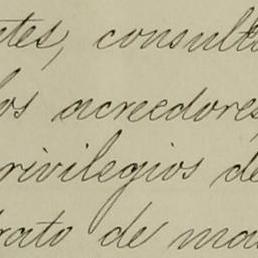 ntes, consulto
los acreedores,
rivilegios de
rato de ma